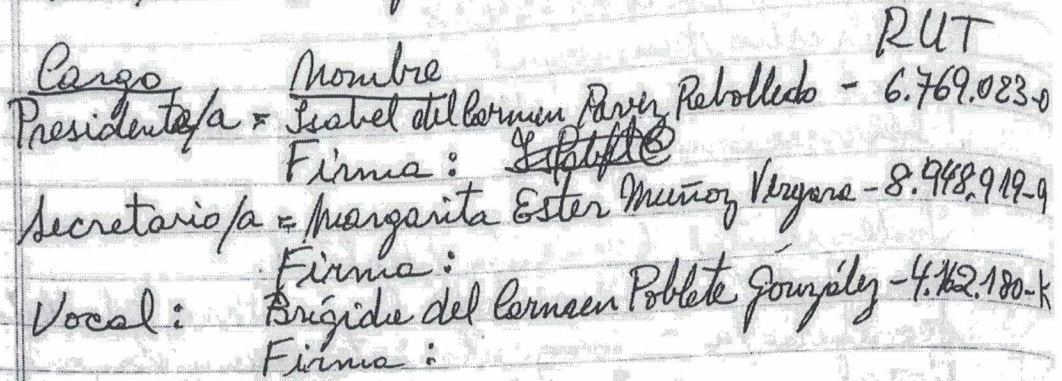 RUT
Cargo Nombre
Presidente/a = Isabel del Carmen Pavez Rebolledo - 6.769.083-0
Firma :
Secretario/a = Margarita Ester Muñoz Vergara - 8.948.919-9
Firma :
Vocal : Brígida del Carmen Poblete González - 4.162.180-K
Firma :